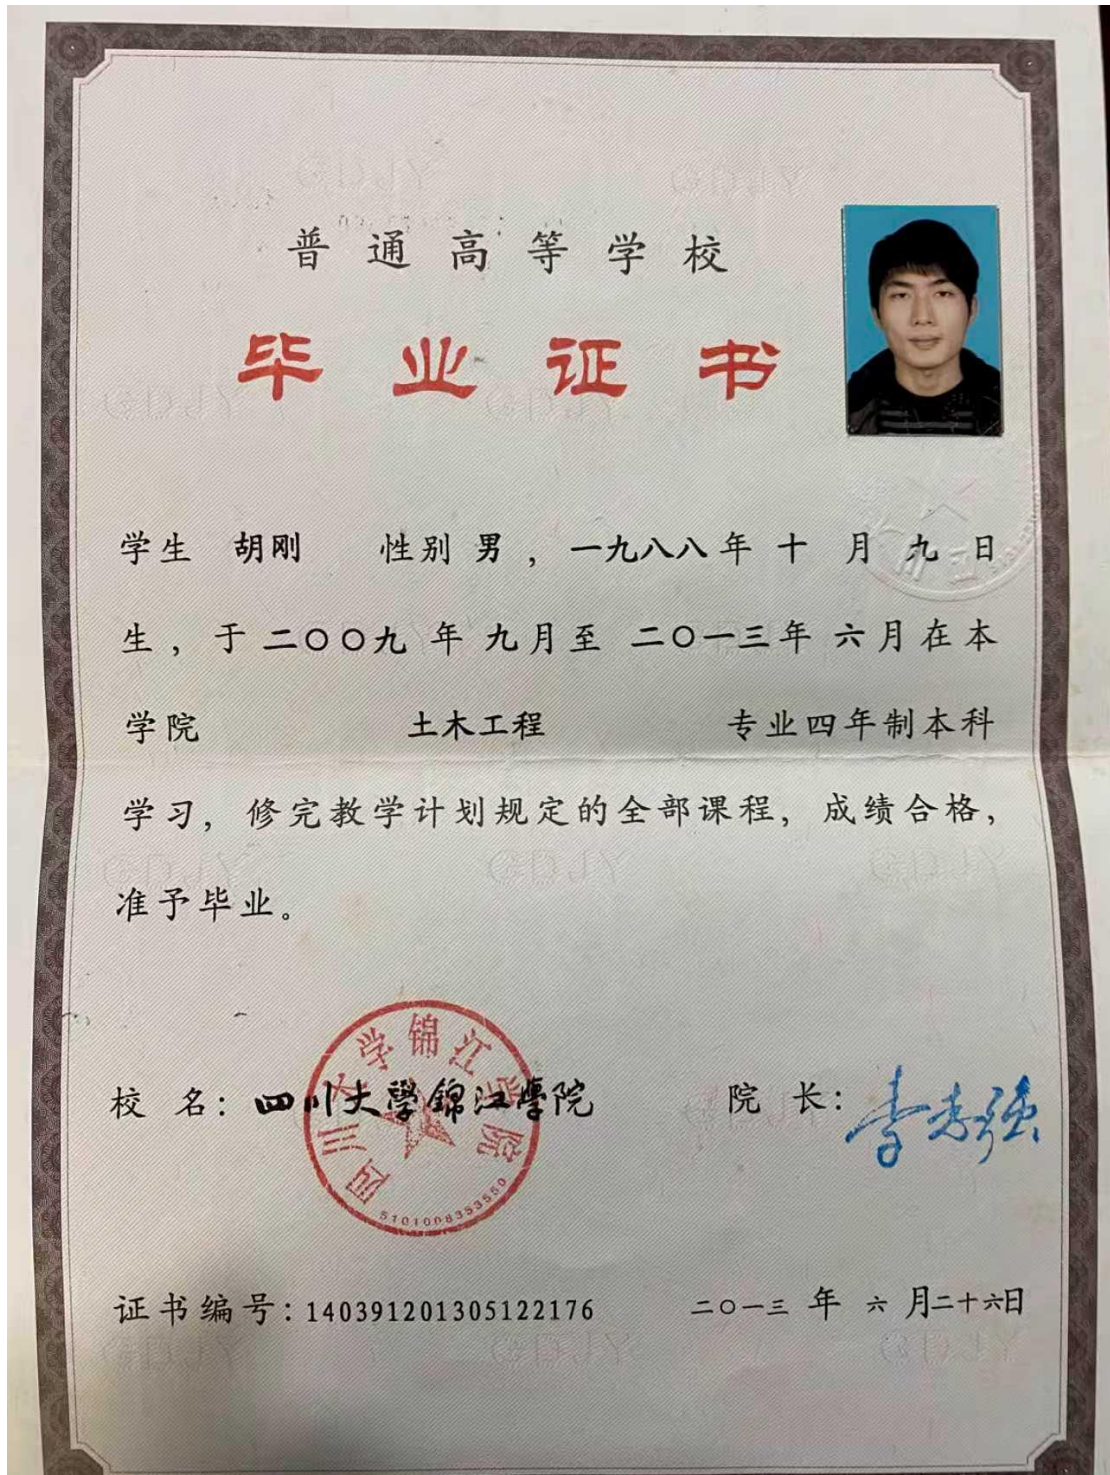 普通高等学校
毕业证书
学生 胡刚 性别 男，一九八八年 十 月 九 日
生，于 二〇〇九 年 九月至 二〇一三年 六月在本
学院 土木工程 专业四年制本科
学习，修完教学计划规定的全部课程，成绩合格，
准予毕业。
四川大学锦江学院
校 名：四川大學錦江學院 院 长：
5101008353550
证书编号：140391201305122176 二〇一三 年 六 月二十六日